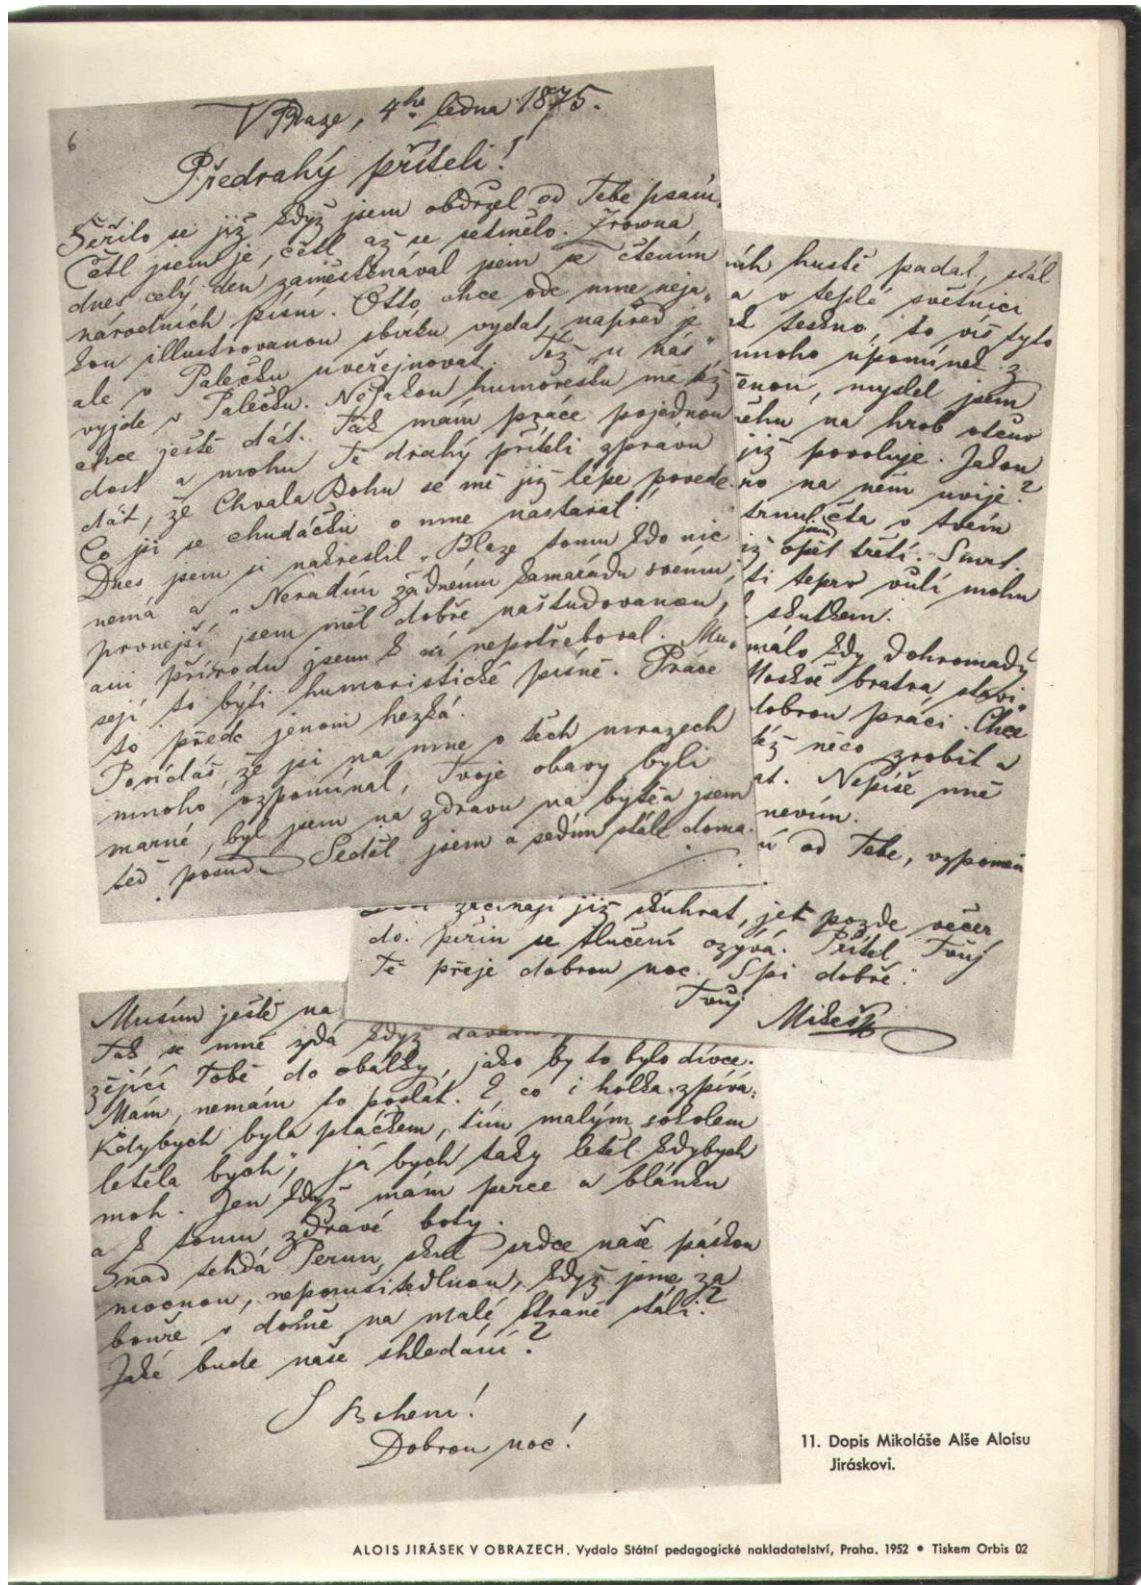 6
V Praze, 4ho ledna 1875.
Předrahý příteli!
Šeřilo se již když jsem obdržel od Tebe psaní,
Četl jsem je, četl až se setmělo. Zrovna
dnes celý den zaměstknával jsem se čtením
národních písní. Otto chce ode mne neja„
kou illustrovanou sbírku vydat, napřed je
ale v Palečku uveřejnovat. Též „u nás"
vyjde v Palečku. Nějakou humoresku mě též
chce ještě dát. Tak mám práce pojednou
dost a mohu Tě drahý příteli zprávu
dát, že Chvala Bohu se mě již lépe povede.
Co jsi se chudáčku o mne nastaral!
Dnes jsem si nakreslil „Blaze tomu kdo nic
nemá a „Neradím žádnému kamarádu svému,
prvnejší jsem měl dobře naštudovanou,
ani přírodu jsem k ní nepotřeboval. Mu„
sejí to býti humoristické písně. Práce
to předc jenom hezká.
Povídáš, že jsi na mne v těch mrazech
mnoho vzpomínal, Tvoje obavy byli
marné, byl jsem na zdravu na bytě a jsem
teď posud. Seděl jsem a sedím stále doma.
hustě padal, stál
a v teplé světnici
teskno, to víš tyto
mnoho upomínek z
myslel jsem
na hrob otcův
již povoluje. Jakou
na něm uvije?
četa v tvém
jsem
opět třetí. - Smrt.
ti teprv vůlí mohu
skutkem.
málo kdy dohromady
Moskvě bratra, stavi„
dobrou práci. Chce
též něco zrobit a
Nepíše mně
nevím.
od Tebe, vzpomín
začínají již skuhrat, jek pozdě večer
do peřin se tlučení ozývá. Přítel Tvůj
Tě přeje dobrou noc. Spi dobře.
Tvůj
Mikeš
Musím ještě na
Tak se mně zdá když davám
Tobě do obálky, jako by to bylo dívce.
Mám, nemám to poslat. I, co i holka zpívá:
Kdybych byla ptáčkem, tím malým sokolem
letěla bych", já bych taky letěl kdybych
moh. Jen když mám perce a blánku
a k tomu zdravé boty.
Snad tehdá Perun skul srdce naše páskou
mocnou, neporušitedlnou, když jsme za
bouře v domě na malé straně stáli?
Jaké bude naše shledání?
S Bohem!
Dobrou noc!
11. Dopis Mikoláše Alše Aloisu
Jiráskovi.
ALOIS JIRÁSEK V OBRAZECH. Vydalo Státní pedagogické nakladatelství, Praha. 1952 • Tiskem Orbis 02